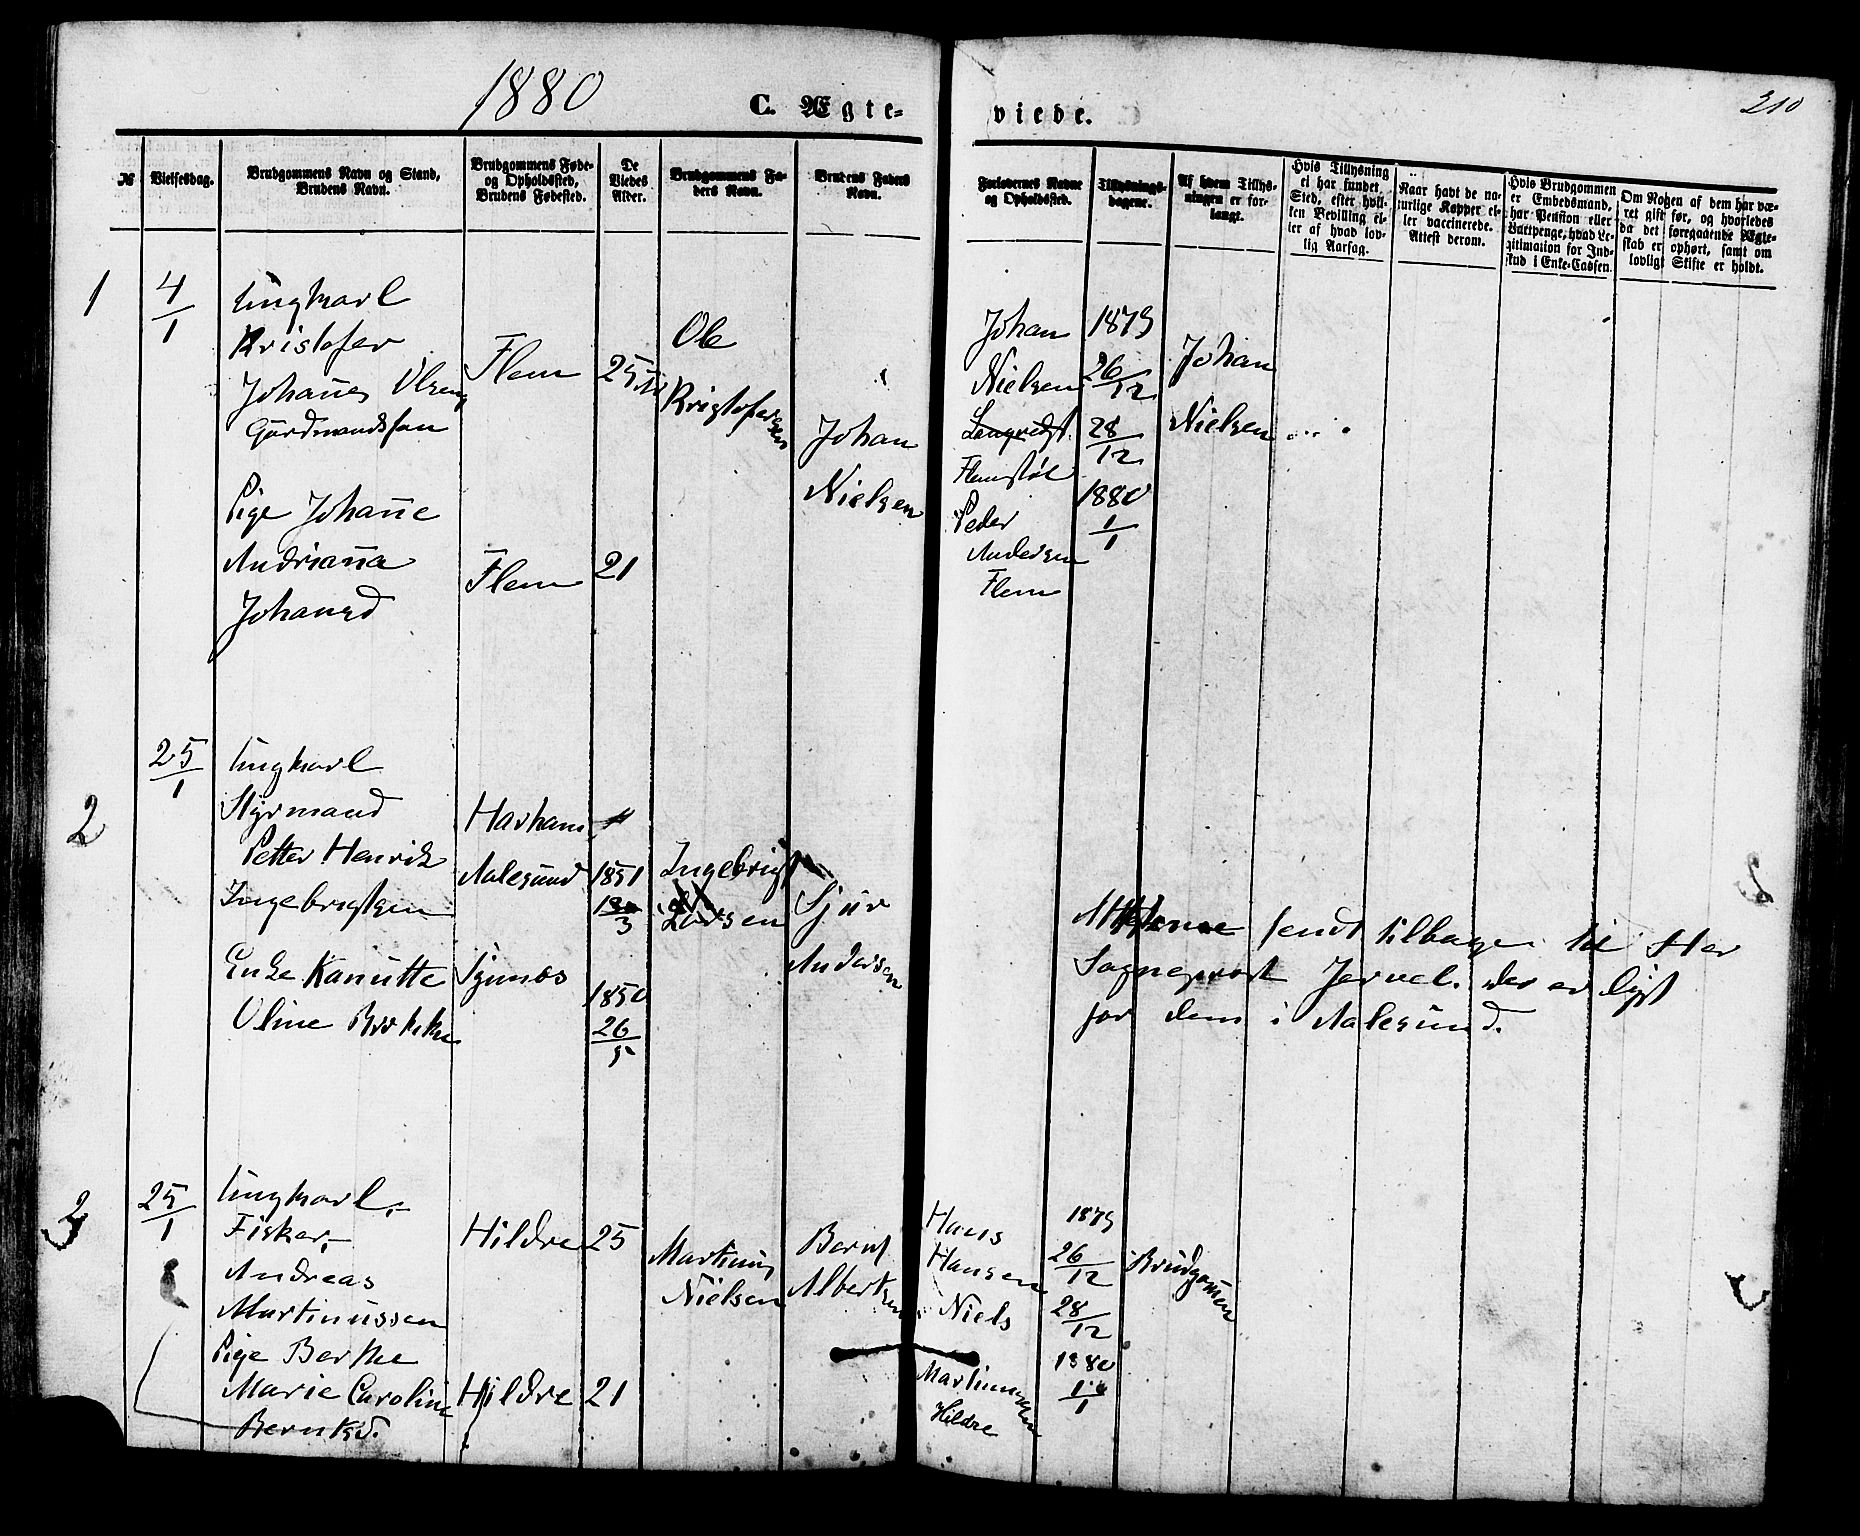 1880
C. Ægte-
viede.
210
№
Vielsesdag.
Brudgommens Navn og Stand,
Brudens Navn.
Brudgommens Føde-
og Opholdssted,
Brudens Fødested.
De
Viedes
Alder.
Brudgommens Fa-
ders Navn.
Brudens Faders
Navn.
Forlovernes Navne
og Opholdssted.
Tillysnings-
dagene.
Af hvem Tillys-
ningen er for-
langt.
Hvis Tillysning
ei har fundet
Sted, efter hvil-
ken Bevilling el-
ler af hvad lov-
lig Aarsag.
Naar havt de na-
turlige Kopper el-
ler vaccinerede.
Attest derom.
Hvis Brudgommen
er Embedsmand,
har Pension eller
Vartpenge, hvad Le-
gitimation for Ind-
skud i Enke-Cassen.
Om Nogen af dem har væ-
ret gift før, og hvorledes
da det foregaaende Ægte-
skab er ophørt, samt om
lovligt Skifte er holdt.
1
4/1
Ungkarl
Kristofer
Johañes Olsen
Gardmandsøn
Flem
25
Ole
Kristofersen
Pige Johañe
Andriaña
Johansd
Flem
21
Johan
Nielsen
Johan
Nielsen
Longvedst
Flemstøl
Peder
Andersen
Flem
1879
26/12
28/12
1880
1/1
Johan
Nielsen
2
25/1
Ungkarl
Styrmand
Petter Henrik
Ingebrigtsen
Harham
Aalesund
1851
/3
Ingebrigt
Larsen
Enke Kanutte
Oline
1850
26/5
Sjur
Andersen
sendt tilbage til Her
Sogneprost Jervel. der er lyst
for dem i Aalesund.
3
25/1
Ungkarl,
Fisker,
Andreas
Martinussen
Hildre
25
Martinus
Nielsen
Pige Berthe
Marie Caroline
Berntsd.
Hildre
21
Bernt
Albertsen
Hans
Hansen
Niels
Martinussen
Hildre
1879
26/12
28/12
1880
1/1
Brudgomen